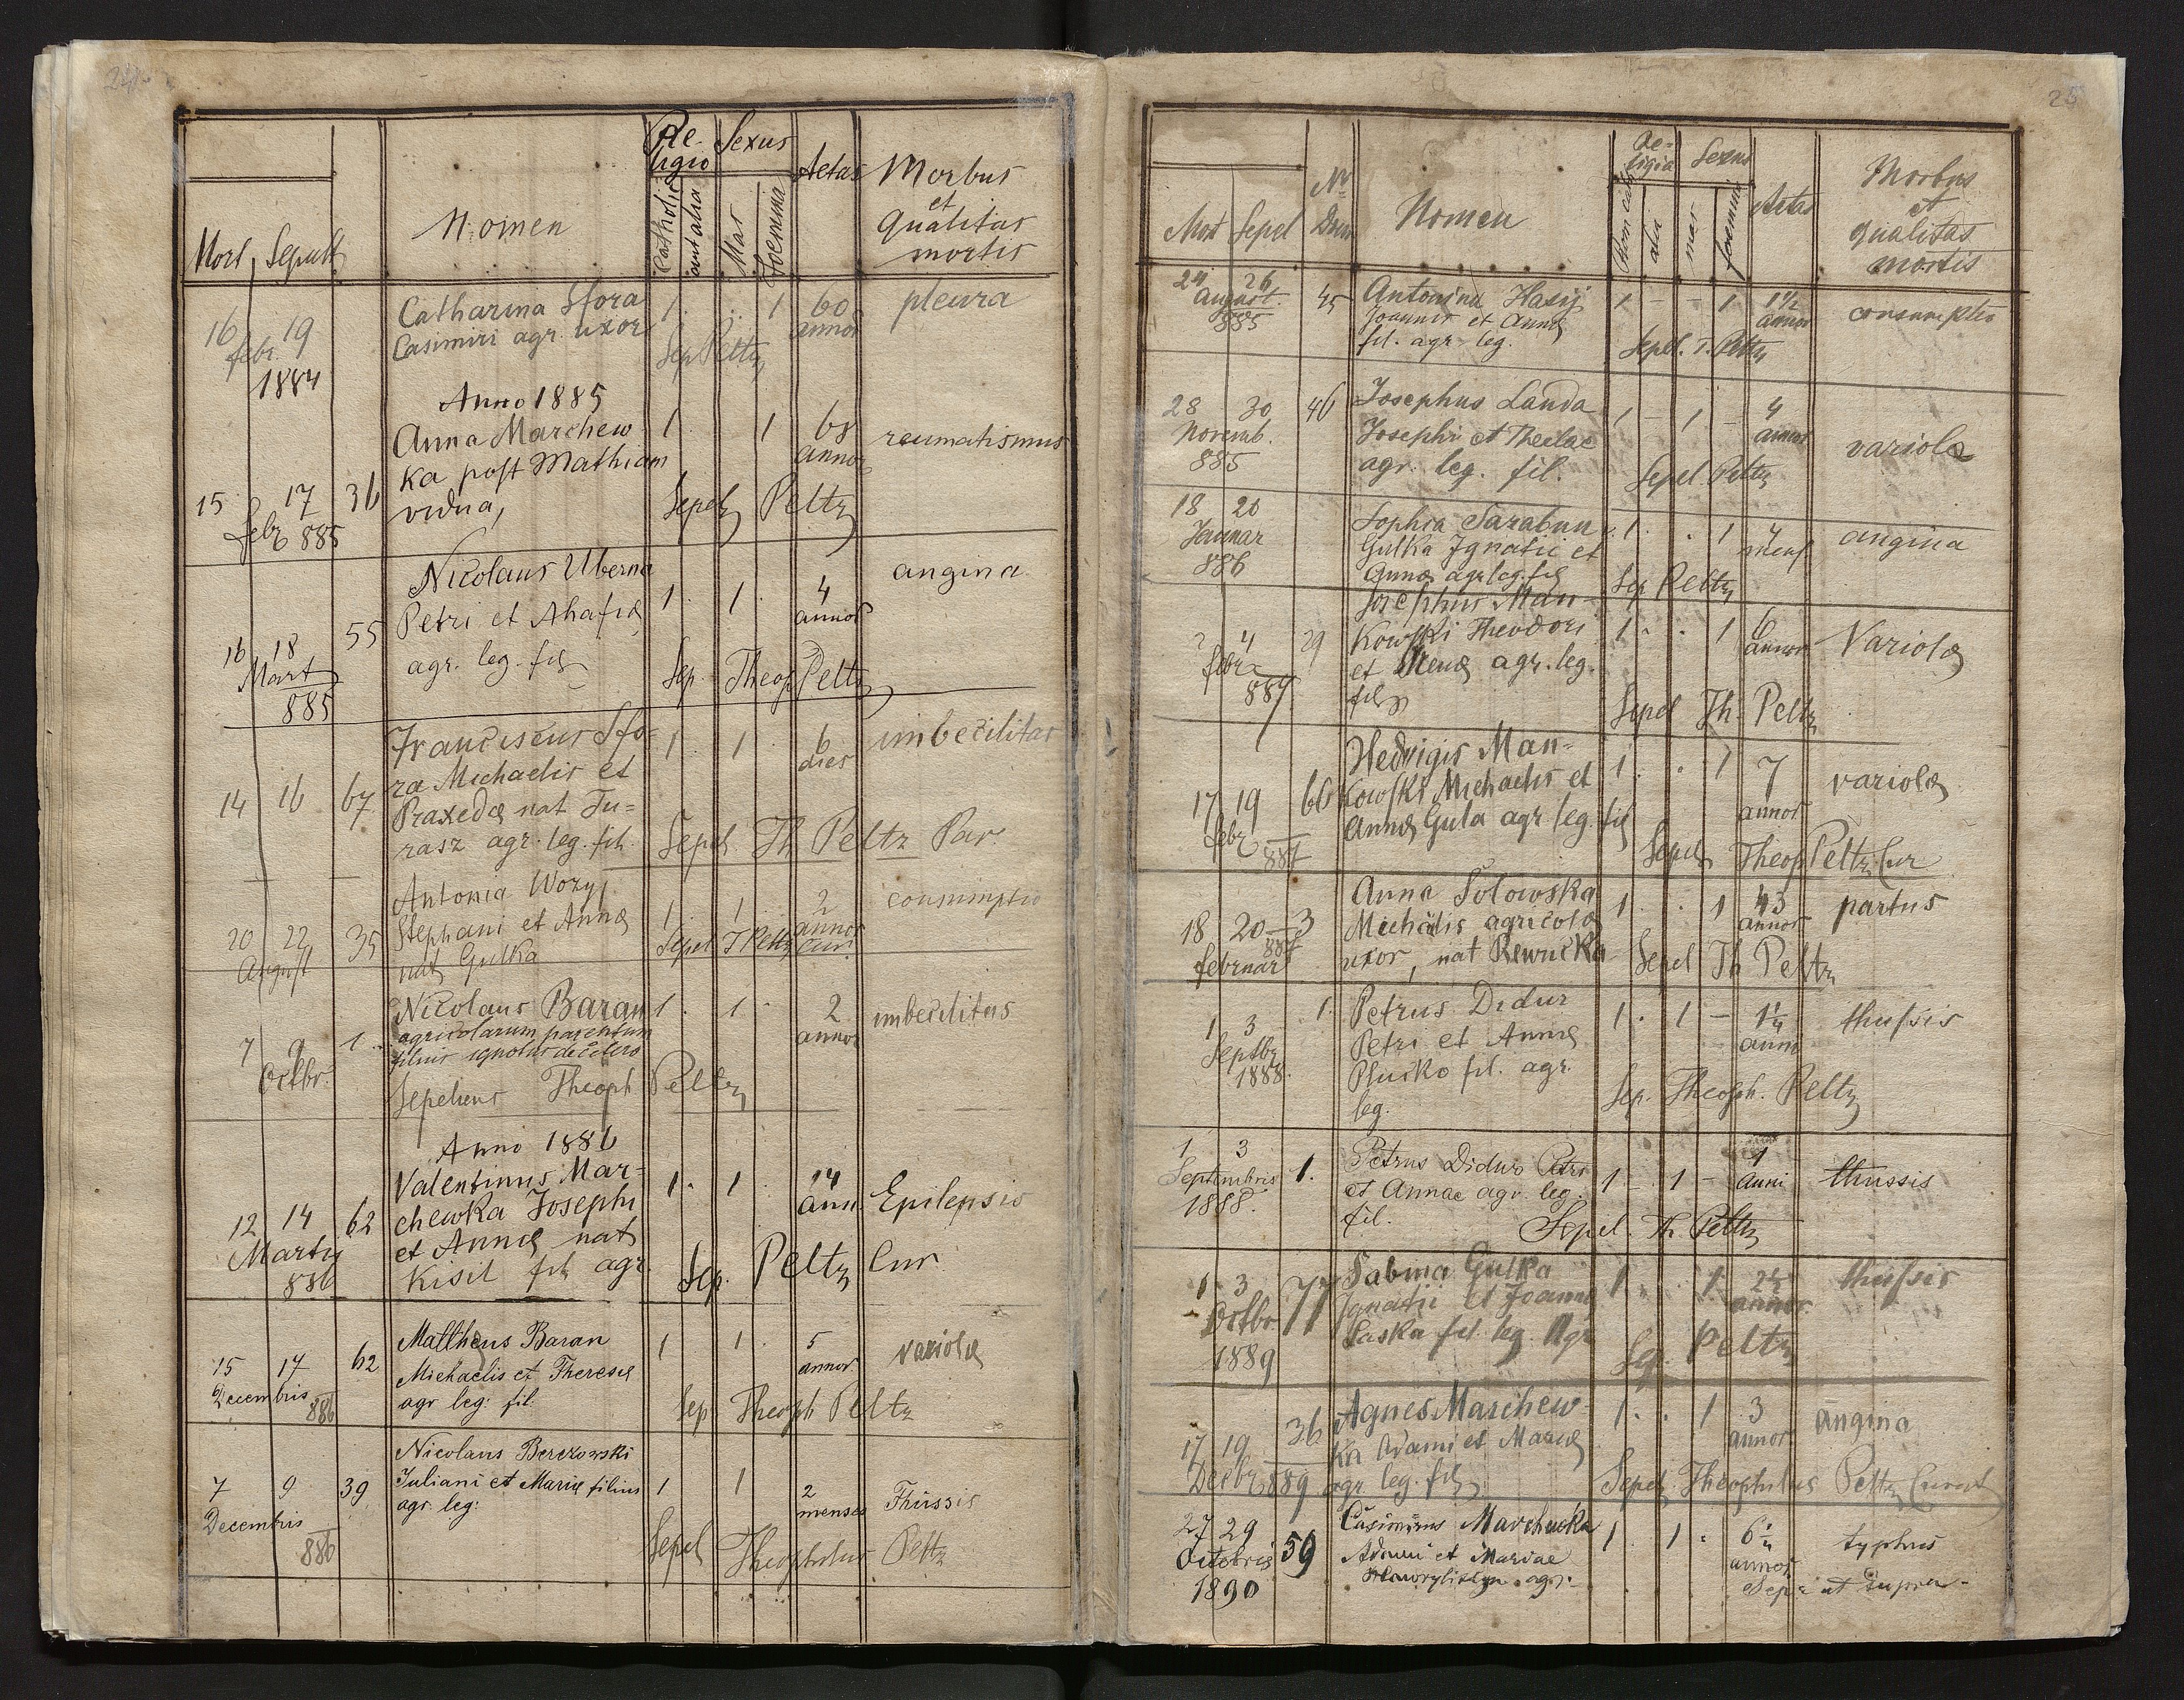 24
Mort Sepult
Nomen
Religio
Catholic
aut alia
Sexus
Mas
Foemina
Aetas
Morbus
et
qualitas
mortis
16 19
febr.
1884
Catharina Sfora
Casimiri agr. uxor
1 . .. 1 60
annor
pleura
Sep Peltz
Anno 1885
15 17 36
febr 885
Anna Marchew
ka post Mathiam
vidua,
1. 1 68
annor
reumatismus
Sepel Peltz
16 18 55
Mart
885
Nicolaus Uberna
Petri et Ahafiæ
agr. leg. fil
1. 1. 4
annor
angina
Sep. Theop Peltz
14 16 67
Franciscus Sfo-
ra Michaelis et
Praxedæ nat Tu=
rasz agr. leg. fil.
1. 1. 6
dies
imbecilitas
Sepel. Th Peltz Par.
20 22 35
August
Antonia Wozy
Stephani et Annæ
nat Gulka
1. 1. 2
annor
consumptio
Sepel T Peltz cur.
7 9 1.
Octbr.
Nicolaus Baran
agricolarum parentum
filius ignotus de cetero
1. 1. 2
annor
imbecilitas
Sepeliens Theoph Peltz
Anno 1886
12 14 62
Martij
886
Valentinus Mar-
chewka Josephi
et Annæ nat
Kisil fil agr.
1. 1. 14
ann
Epilepsis
Sep. Peltz Cur
15 17 62
Decembris
886
Mattheus Baran
Michaelis et Theresæ
agr leg: fil.
1 1. 5
annor
variolæ
Sep Theoph Peltz
7 9 39
Decembris
886
Nicolaus Berezowski
Juliani et Mariæ filius
agr. leg:
1 1 2
menses
Thussis
Sepel Theophilus Peltz
25
Mort Sepel
Nr
Dom
Nomen
Religia
Rom cath
alia
Sexus
mas
foemina
Aetas
Morbus
et
qualitas
mortis
24 26 45
August.
885
Antonina Hasij
Joannis et Annæ
fil. agr. leg.
1 - - 1 1½
annor
consumptio
Sepel. T. Peltz
28 30 46
Novemb.
885
Josephus Landa
Josephi et Theclae
agr. leg. fil.
1 - 1 - 4
annor
variolæ
Sepel Peltz
18 20
Januar
886
Sophia Saraban
Gulka Ignatii et
Annæ agr leg. fil
1. . 1 4
mens
angina
Sep Peltz
2 4 29
febr
887
Josephus Man-
Kowski Theodori
et Irenæ agr. leg.
fil
1. . 1 6
annor
Variolæ
Sepel Th. Peltz
17 19 66
febr
887
Hedvigis Man-
Kowski Michaelis et
Annæ Gula agr leg. fil
1. . 1 7
annor
variolæ
Sepel Theop Peltz Cur
18 20 3
887
februar
Anna Sotowska
Michælis agricolæ
uxor, nat Rewucka
1. . 1 43
annor
partus
Sepel Th Peltz
1 3 1.
Septbr
1888.
Petrus Didur
Petri et Annæ
Plusko fil. agr.
leg.
1. 1 - 1¼
anni
thussis
Sep. Theoph. Peltz
1 3 1.
Septembris
1888.
Petrus Didur Petri
et Annae agr. leg.
fil.
1 - 1 - 1
anni
thussis
Sepel. Th. Peltz
1 3 77
Octbr
1889
Sabina Gulka
Ignatii et Joanna
Laska fil. leg. Agr
1. . 1 2½
annor
thussis
Sep. Peltz
17 19 36
Decbr 889
Agnes Marchew-
ka Adami et Mariæ
agr. leg. fil
1. . 1 3
annor
angina
Sepel Theophilus Peltz Curat
27 29 59
Octobris
1890
Casimirus Marchewka
Adami et Mariae
agr.
1. 1 . 6½
annor
typhus
Sep: ut supra-